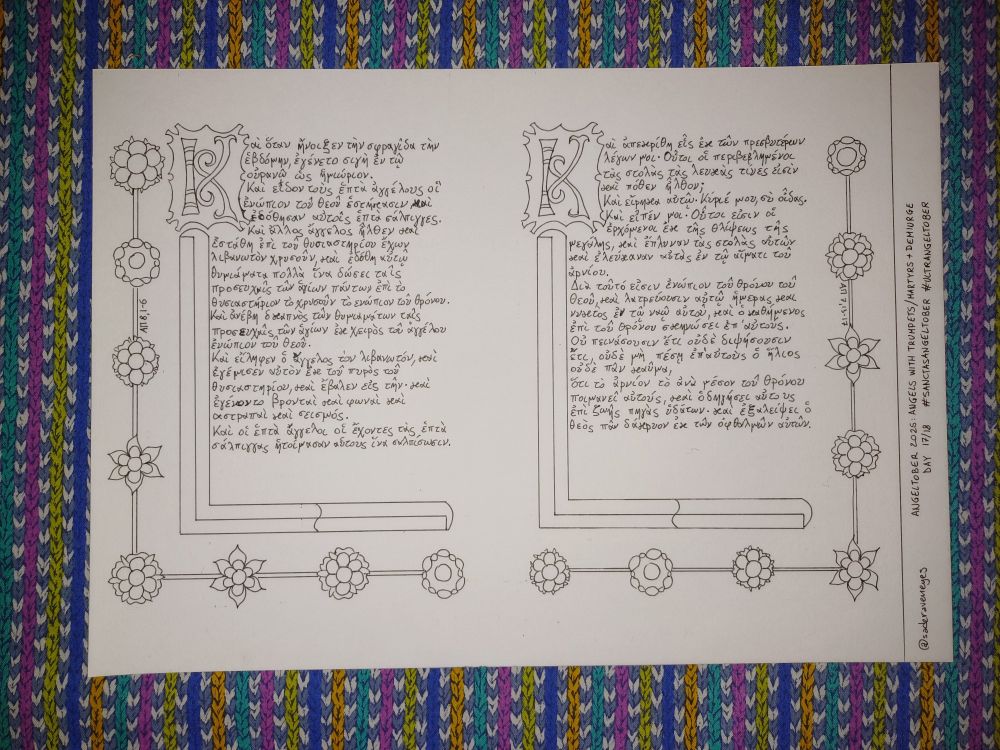 Καὶ ὅταν ἤνοιξεν τὴν σφραγῖδα τὴν
ἑβδόμην, ἐγένετο σιγὴ ἐν τῷ
οὐρανῷ ὡς ἡμιώριον.
Καὶ εἶδον τοὺς ἑπτὰ ἀγγέλους οἳ
ἐνώπιον τοῦ θεοῦ ἑστήκασιν, καὶ
ἐδόθησαν αὐτοῖς ἑπτὰ σάλπιγγες.
Καὶ ἄλλος ἄγγελος ἦλθεν καὶ
ἐστάθη ἐπὶ τοῦ θυσιαστηρίου ἔχων
λιβανωτὸν χρυσοῦν, καὶ ἐδόθη αὐτῷ
θυμιάματα πολλὰ ἵνα δώσει ταῖς
προσευχαῖς τῶν ἁγίων πάντων ἐπὶ τὸ
θυσιαστήριον τὸ χρυσοῦν τὸ ἐνώπιον τοῦ θρόνου.
Καὶ ἀνέβη ὁ καπνὸς τῶν θυμιαμάτων ταῖς
προσευχαῖς τῶν ἁγίων ἐκ χειρὸς τοῦ ἀγγέλου
ἐνώπιον τοῦ θεοῦ.
Καὶ εἴληφεν ὁ ἄγγελος τὸν λιβανωτόν, καὶ
ἐγέμισεν αὐτὸν ἐκ τοῦ πυρὸς τοῦ
θυσιαστηρίου, καὶ ἔβαλεν εἰς τὴν· καὶ
ἐγένοντο βρονταὶ καὶ φωναὶ καὶ
ἀστραπαὶ καὶ σεισμός.
Καὶ οἱ ἑπτὰ ἄγγελοι οἱ ἔχοντες τὰς ἑπτὰ
σάλπιγγας ἡτοίμασαν αὑτοὺς ἵνα σαλπίσωσιν.
ΑΠ 8,1-6
Καὶ ἀπεκρίθη εἷς ἐκ τῶν πρεσβυτέρων
λέγων μοι· Οὗτοι οἱ περιβεβλημένοι
τὰς στολὰς τὰς λευκὰς τίνες εἰσὶν
καὶ πόθεν ἦλθον;
Καὶ εἴρηκα αὐτῷ· Κύριέ μου, σὺ οἶδας.
Καὶ εἶπέν μοι· Οὗτοί εἰσιν οἱ
ἐρχόμενοι ἐκ τῆς θλίψεως τῆς
μεγάλης, καὶ ἔπλυναν τὰς στολὰς αὐτῶν
καὶ ἐλεύκαναν αὐτὰς ἐν τῷ αἵματι τοῦ
ἀρνίου.
Διὰ τοῦτό εἰσιν ἐνώπιον τοῦ θρόνου τοῦ
θεοῦ, καὶ λατρεύουσιν αὐτῷ ἡμέρας καὶ
νυκτὸς ἐν τῷ ναῷ αὐτοῦ, καὶ ὁ καθήμενος
ἐπὶ τοῦ θρόνου σκηνώσει ἐπ᾽ αὐτούς.
Οὐ πεινάσουσιν ἔτι οὐδὲ διψήσουσιν
ἔτι, οὐδὲ μὴ πέσῃ ἐπ᾽ αὐτοὺς ὁ ἥλιος
οὐδὲ πᾶν καῦμα,
ὅτι τὸ ἀρνίον τὸ ἀνὰ μέσον τοῦ θρόνου
ποιμανεῖ αὐτούς, καὶ ὁδηγήσει αὐτοὺς
ἐπὶ ζωῆς πηγὰς ὑδάτων· καὶ ἐξαλείψει ὁ
θεὸς πᾶν δάκρυον ἐκ τῶν ὀφθαλμῶν αὐτῶν.
ΑΠ 7,13-17
ANGELTOBER 2025: ANGELS WITH TRUMPETS/MARTYRS + DEMIURGE
DAY 17/18 #SANCTASANGELTOBER #ULTRANGELTOBER
@saderaveneyes